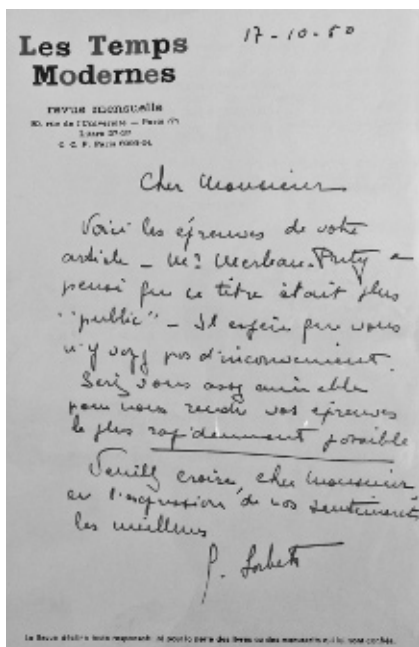 17-10-50
Les Temps
Modernes
revue mensuelle
30, rue de l'Université — Paris
Littré
C. C. P. Paris
Cher Monsieur
Voici les épreuves de votre
article — Mr Merleau-Ponty a
pensé que ce titre était plus
"public" — Il espère que vous
n'y voyez pas d'inconvénient.
Seriez vous assez aimable
pour nous rendre vos épreuves
le plus rapidement possible
Veuillez croire, cher Monsieur
en l'expression de nos sentiments
les meilleurs
La Revue décline toute responsabilité pour la perte des livres ou des manuscrits qui lui sont confiés.